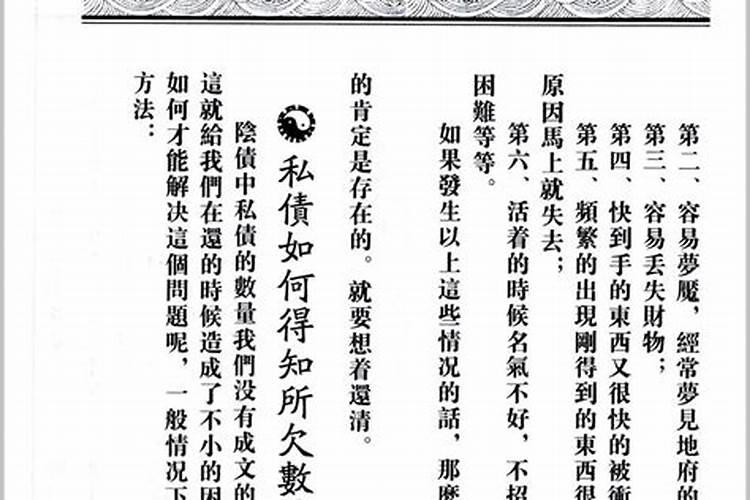 第二、容易夢魘，經常夢見地府的
第三、容易丟失財物；
第四、快到手的東西又很快的被衝
第五、頻繁的出現剛得到的東西很
原因馬上就失去；
第六、活着的時候名氣不好，不招
困難等等。
如果發生以上這些情况的話，那麽
的肯定是存在的。就要想着還清。
私債如何得知所欠數
陰債中私債的數量我們没有成文的
這就給我們在還的時候造成了不小的困
如何才能解决這個問題呢，一般情况下
方法：